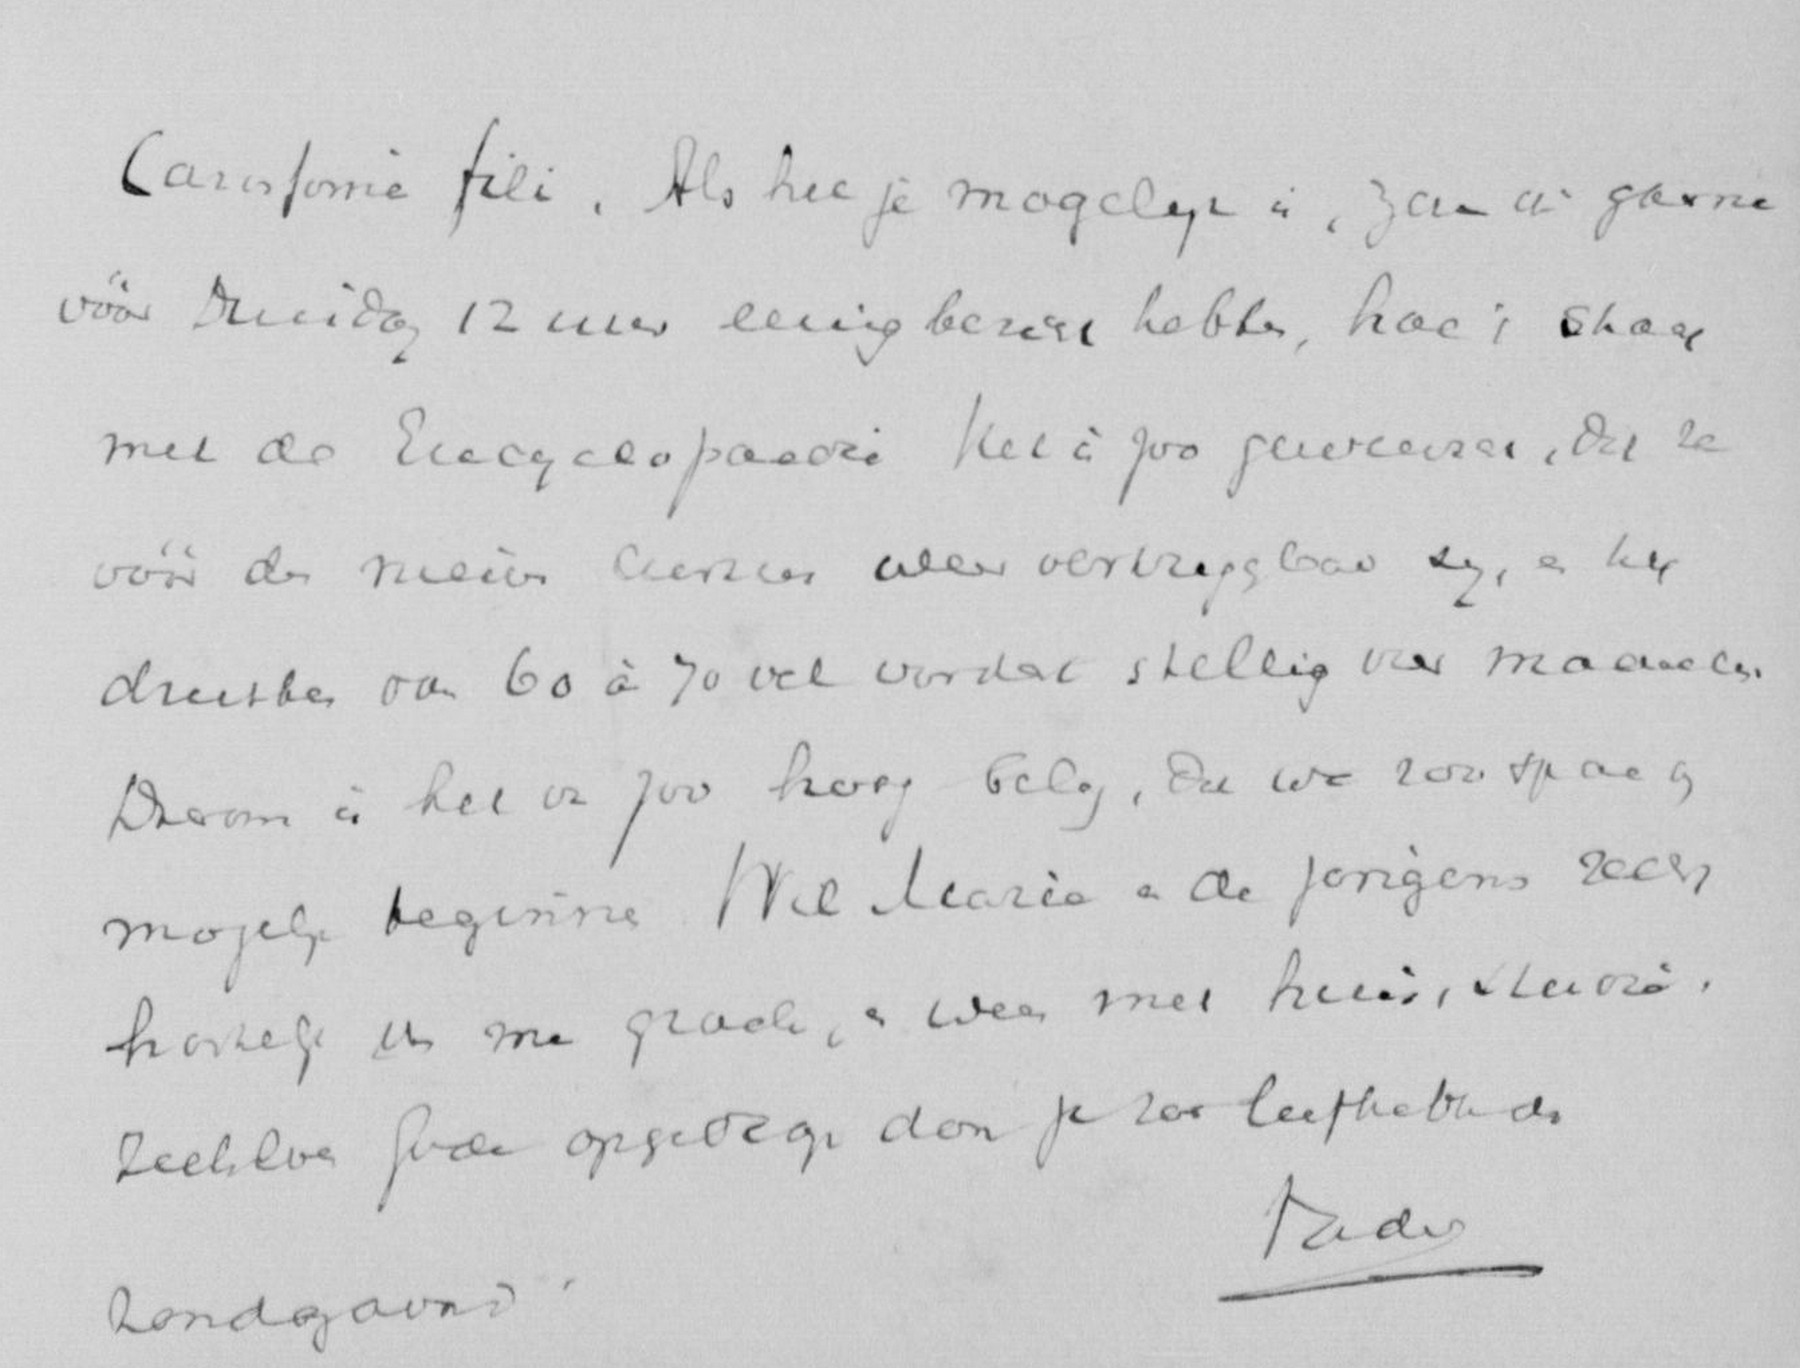 Carissime fili. Als het je mogelijk is, zou ik gaarne
vóór Dinsdag 12 uur eenig bericht hebben, hoe 't staat
met de Encyclopaedie. Het is zoo gewenscht, dat ze
vóór den nieuwen cursus weer verkrijgbaar zij, en het
drukken van 60 à 70 vel vordert stellig vier maanden.
Daarom is het van zoo hoog belang, dat we zoo spoedig
mogelijk beginnen. Wil Marie en de jongens zeer
hartelijk van me groeten, en wees met huis, studie,
Gode opgedragen door je zeer liefhebbende
Vader
Zondagavond